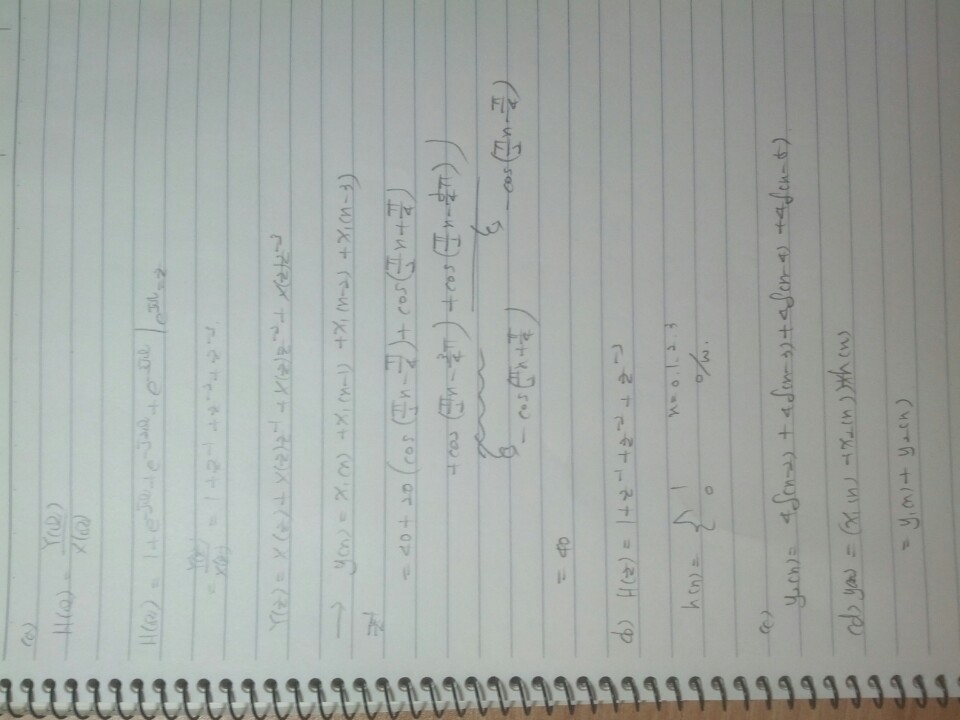 (a)
H(Ω) = Y(Ω) / X(Ω)
H(Ω) = 1 + e^-jΩ + e^-j2Ω + e^-j3Ω | e^jΩ = z
= Y(z) / X(z) = 1 + z^-1 + z^-2 + z^-3
Y(z) = X(z) + X(z)z^-1 + X(z)z^-2 + X(z)z^-3
→ y(n) = x₁(n) + x₁(n-1) + x₁(n-2) + x₁(n-3)
z^-1
= 40 + 20 (cos(π/2 n - π/4) + cos(π/2 n + π/4)
+ cos(π/2 n - 3/4 π) + cos(π/2 n - 5/4 π))
- cos(π/2 n + π/4) - cos(π/2 n - π/4)
= 40
(b) H(z) = 1 + z^-1 + z^-2 + z^-3
h(n) = { 1 n = 0.1.2.3
0 o/w.
(c)
y₂(n) = 4δ(n-2) + 4δ(n-3) + 4δ(n-4) + 4δ(n-5)
(d) y(n) = (x₁(n) + x₂(n)) * h(n)
= y₁(n) + y₂(n)